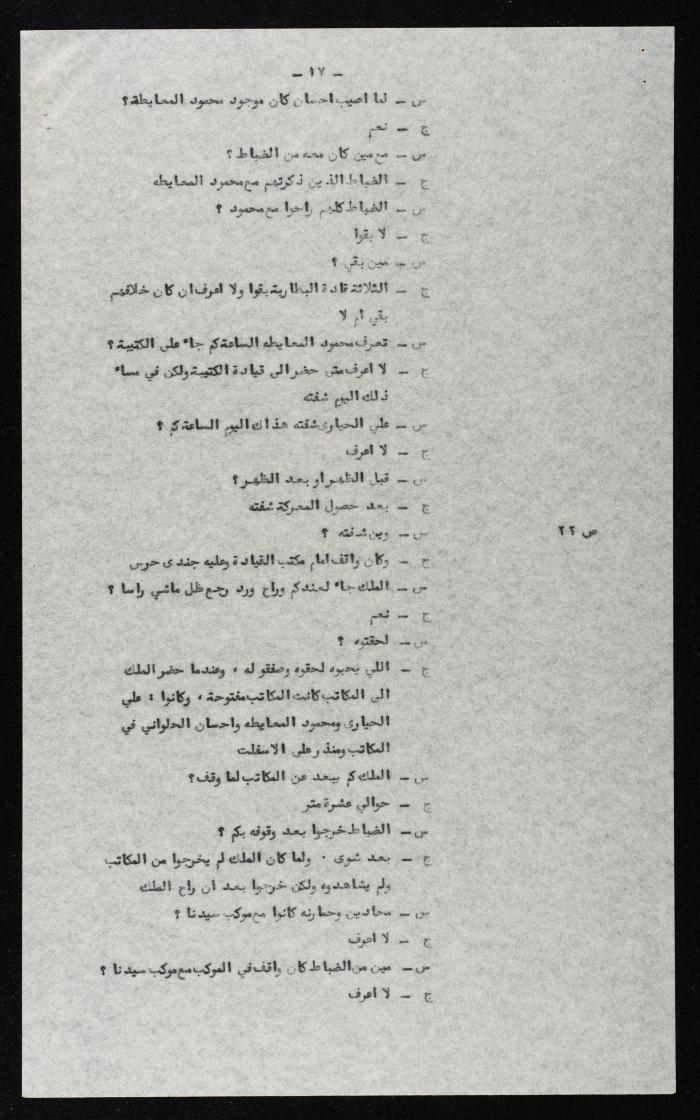 - ١٧ -
س - لما اصيب احسان كان موجود محمود المعايطة؟
ج - نعم
س - مع مين كان معه من الضباط ؟
ج - الضباط الذين ذكرتهم مع محمود المعايطه
س - الضباط كلهم راحوا مع محمود ؟
ج - لا بقوا
س - مين بقي ؟
ج - الثلاثة قادة البطارية بقوا ولا اعرف ان كان خلافهم
بقي ام لا
س - تعرف محمود المعايطه الساعة كم جاء على الكتيبة ؟
ج - لا اعرف متى حضر الى قيادة الكتيبة ولكن في مساء
ذلك اليوم شفته
س - علي الحيارى شفته هذاك اليوم الساعة كم ؟
ج - لا اعرف
س - قبل الظهر او بعد الظهر ؟
ج - بعد حصول المعركة شفته
س - وين شفته ؟
ص ٢٢
ج - وكان واقف امام مكتب القيادة وعليه جندى حرس
س - الملك جاء لعندكم وراح ورد رجع ظل ماشي راسا ؟
ج - نعم
س - لحقتوه ؟
ج - اللي بحبوه لحقوه وصفقو له ، وعندما حضر الملك
الى المكاتب كانت المكاتب مفتوحة ، وكانوا : علي
الحيارى ومحمود المعايطه واحسان الحلواني في
المكاتب ومنذر على الاسفلت
س - الملك كم يبعد عن المكاتب لما وقف؟
ج - حوالي عشرة متر
س - الضباط خرجوا بعد وقوفه بكم ؟
ج - بعد شوى . ولما كان الملك لم يخرجوا من المكاتب
ولم يشاهدوه ولكن خرجوا بعد ان راح الملك
س - محادين وحمارنه كانوا مع موكب سيدنا ؟
ج - لا اعرف
س - مين من الضباط كان واقف في الموكب مع موكب سيدنا ؟
ج - لا اعرف